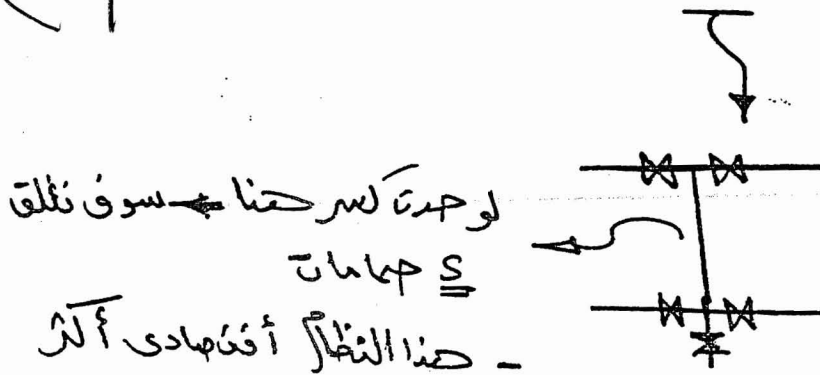 لو حدث كسر هنا ← سوف نغلق
5 صمامات
- هذا النظام أقتصادى أكثر